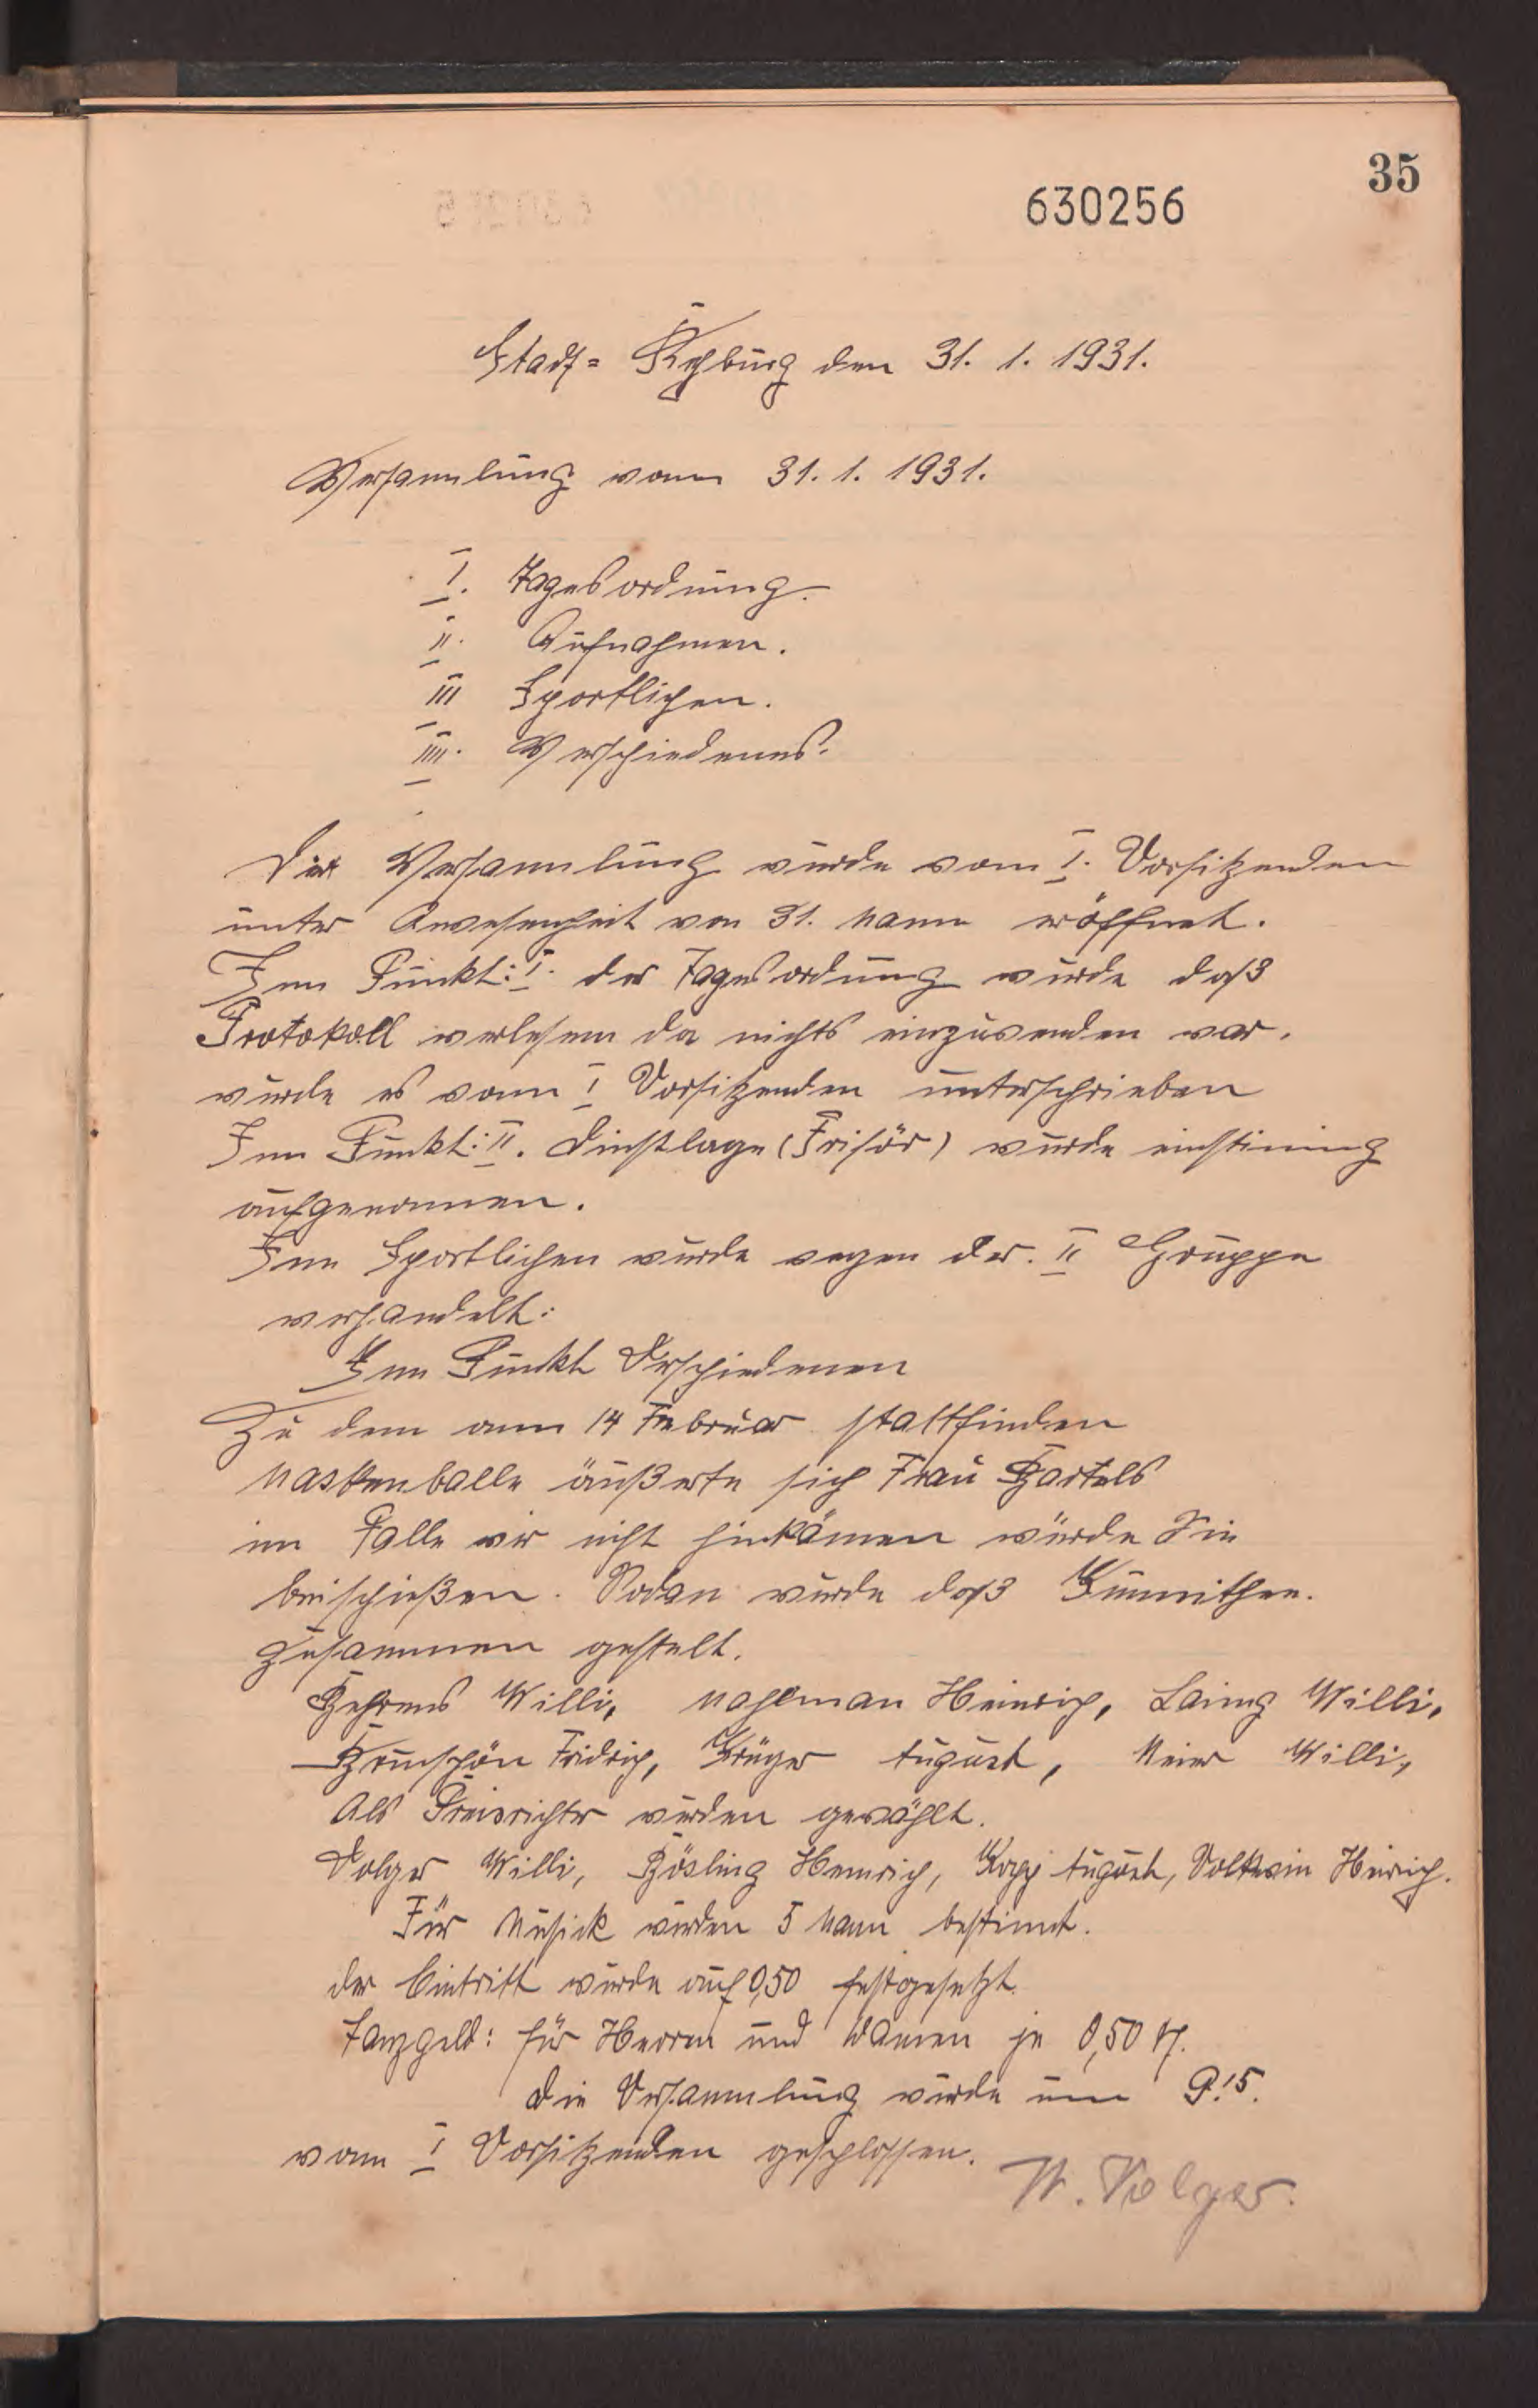 35
630256
Stadt = Rehburg den 31. 1. 1931.
Versammlung vom 31. 1. 1931.
I. Tagesordnung.
II. Aufnahmen.
III Sportlichen.
IIII. Verschiedenes.
Die Versammlung wurde vom I. Vorsitzenden
unter Anwesenheit von 31. Mann eröffnet.
Im Punkt: I. der Tagesordnung wurde daß
Protokoll verlesen da nichts einzuwenden war.
wurde es vom I Vorsitzenden unterschrieben
Im Punkt: II. Dinstlage (Frisör) wurde einstimig
aufgenommen.
Im Sportlichen wurde wegen der. II Gruppe
verhandelt:
Im Punkt Verschiedenen
Zu dem am 14 Februar stattfinden
Maskenballe äußerte sich Frau Bartels
im Falle wir nicht hinkämen würde Sie
beischießen. Sodan wurde daß
zusammen gestelt.
Behrens Willi, Mahlman Heinrich, Willi,
Fridrich, Krüger August, Meier Willi,
Als Preisrichter wurden gewählt.
Volger Willi, Bösling Heinrich, Kopp August, Volkwin Heinrich.
Für Musick wurden 5 Mann bestimt.
der Eintritt wurde auf 0,50 festgesetzt.
Tanzgeld: für Herren und Damen je 0,50 M.
Die Versammlung wurde um 9.15.
vom I Vorsitzenden geschlossen.
W. Volger.